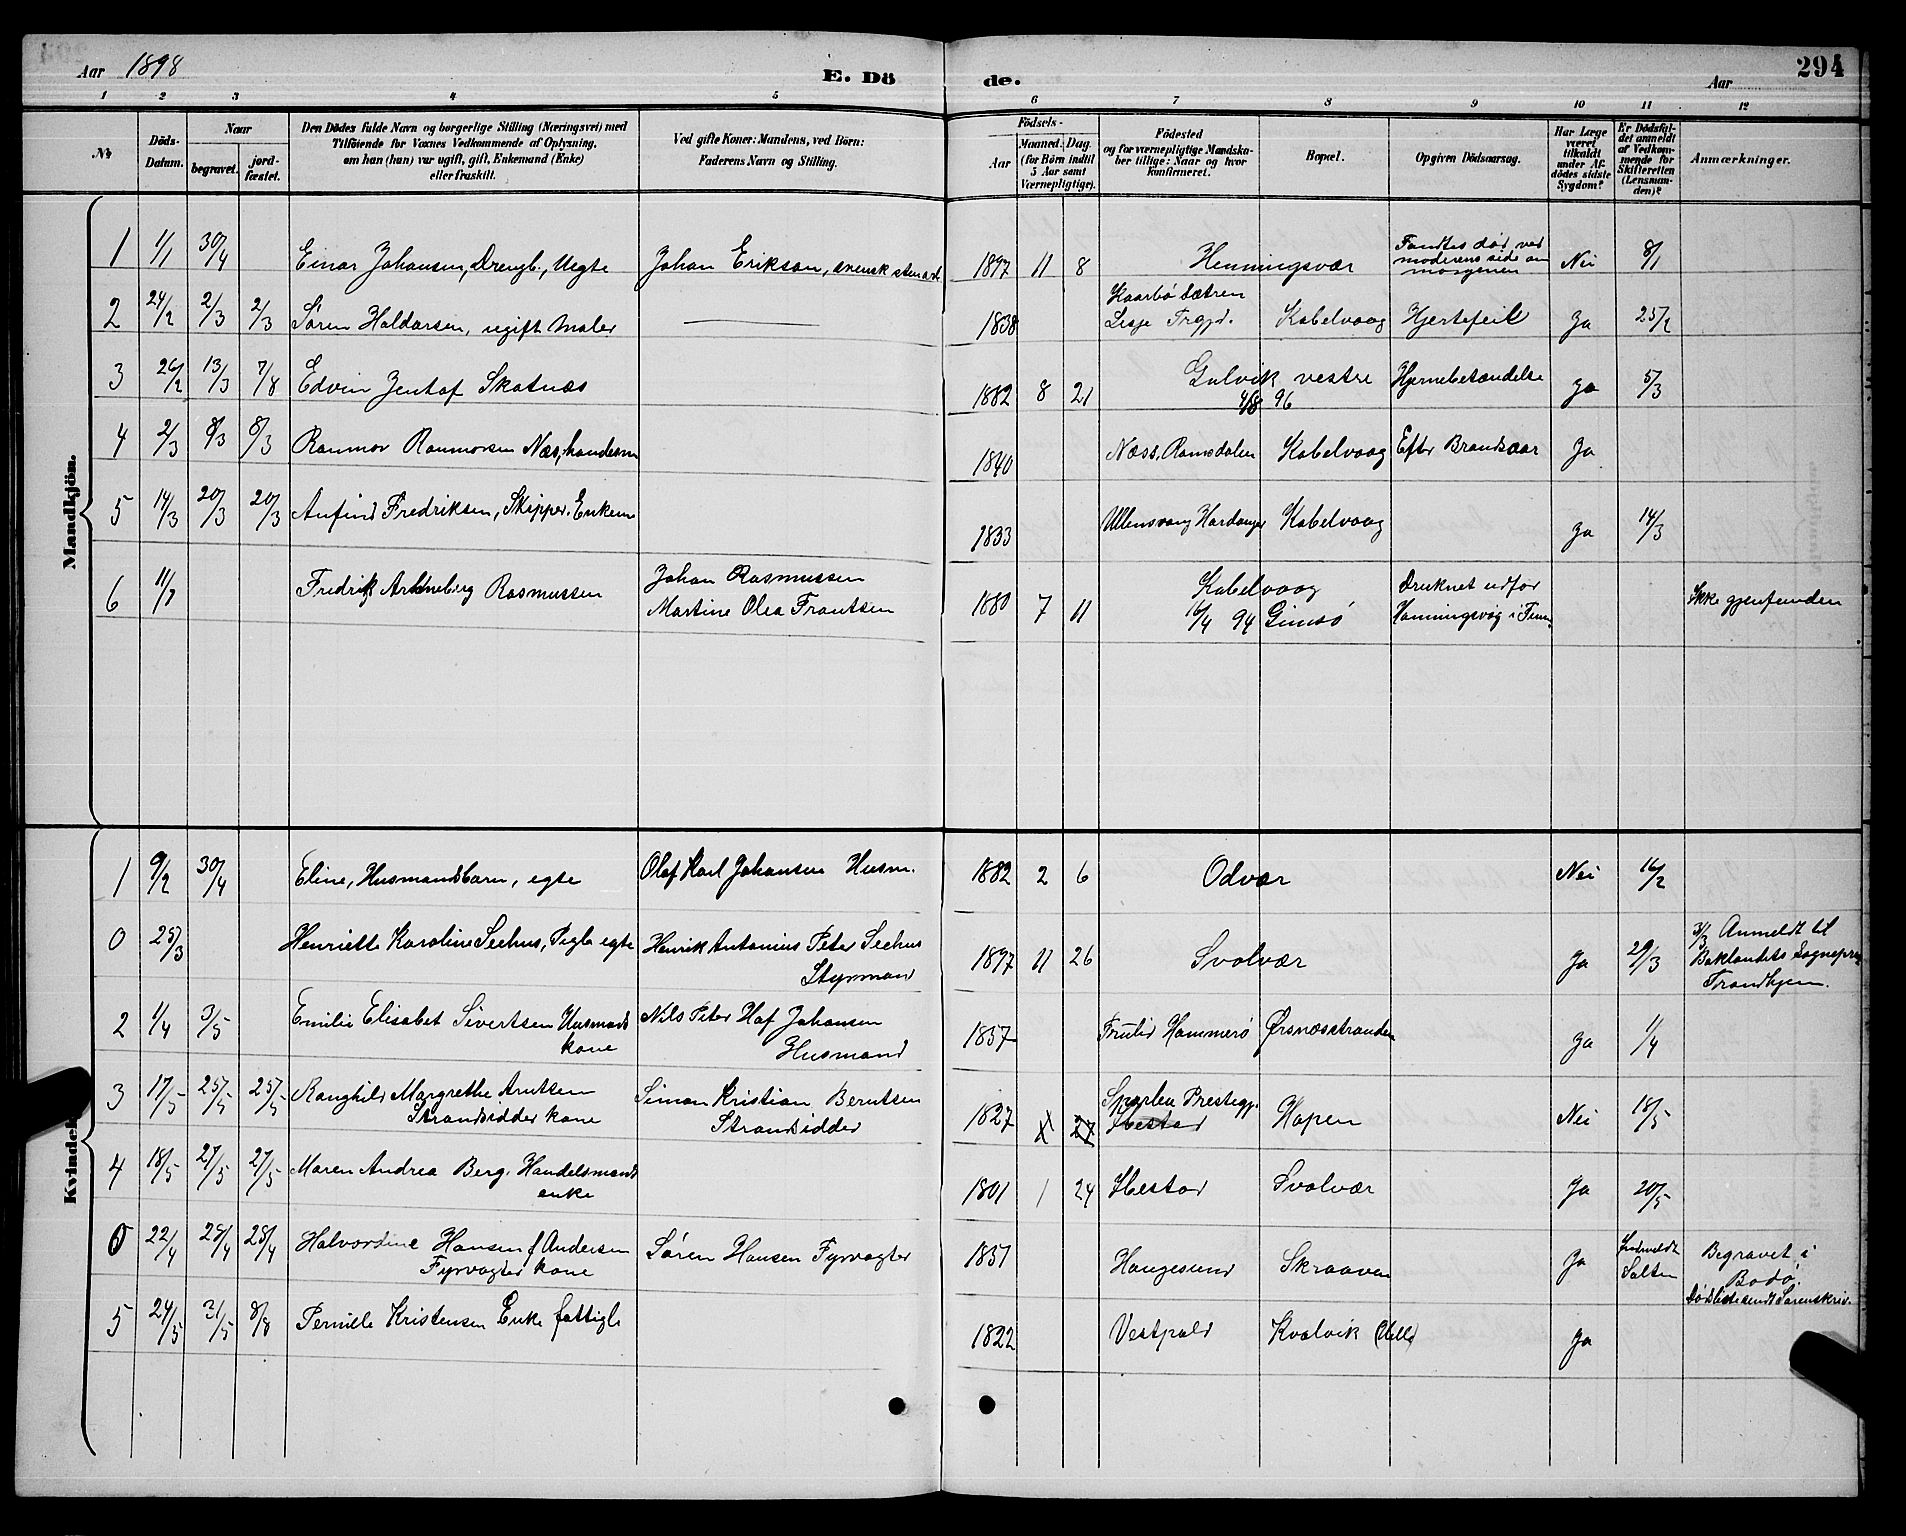 Aar 1898 E. Dö de. Aar 294
1 2 3 4 5 6 7 8 9 10 11 12
№ Döds-Datum. Naar begravet. jordfæstet. Den Dödes fulde Navn og borgerlige Stilling (Næringsvei) med Tilföiende for Voxnes Vedkommende af Oplysning, om han (hun) var ugift, gift, Enkemand (Enke) eller fraskilt. Ved gifte Koner: Mandens, ved Börn: Faderens Navn og Stilling. Födsels- Aar Maaned. Dag. (for Börn indtil 5 Aar samt Værnepligtige). Födested og for værnepligtige Mandskaber tillige: Naar og hvor konfirmeret. Bopæl. Opgiven Dödsaarsag. Har Læge været tilkaldt under Afdödes sidste Sygdom? Er Dödsfaldet anmeldt af Vedkommende for Skifteretten (Lensmanden)? Anmærkninger.
Mandkjön.
1 1/1 30/4 Einar Johansen, Drengb., Uegte Johan Erikson, svensk 1897 11 8 Henningsvær Fandtes död ved moderens side om morgenen Nei 8/1
2 24/2 2/3 2/3 Sören Haldorsen, ugift Maler — 1838 Lesje Kabelvaag Hjertefeil Ja 25/2
3 26/2 13/3 7/8 Edvin Jentof Skotnæs 1882 8 21 Gulvik vestre 4/8 96 Hjernebetændelse Ja 5/3
4 2/3 8/3 8/3 Næs, 1840 Næss, Romsdalen Kabelvaag Efter Brandsaar Ja
5 14/3 20/3 20/3 Anfind Fredriksen, Skipper, Enkem 1833 Ullensvang Hardanger Kabelvaag Ja 14/3
6 11/7 Fredrik Rasmussen Johan Rasmussen
Martine Olea Frantsen 1880 7 11 Kabelvaag 16/4 94 Gimsö Druknet udfor Honningsvåg i Finm. Ikke gjenfunden
Kvindekjön.
1 9/2 30/4 Eline, Husmandsbarn, egte Olaf Karl Johansen Husm. 1882 2 6 Odvær Nei 16/2
0 25/3 Henriette Karoline Seehus, Pigb. egte Henrik Antonius Peter Seehus
Styrmand 1897 11 26 Svolvær Ja 29/3 31/3 Anmeldt til
Baklandets Sognepræ
Trondhjem.
2 1/4 3/5 Emilie Elisabet Sivertsen Husmands
kone Nils Peter Johansen
Husmand 1857 Hammerö Örsnæsstranden Ja 1/4
3 17/5 25/5 25/5 Ranghild Margrethe Arntsen
Strandsidder kone Simon Kristian Berntsen
Strandsidder 1827 Prestegj.
Ibestad Hopen Nei 18/5
4 18/5 27/5 27/5 Maren Andrea Berg, Handelsmands
enke 1801 1 24 Ibestad Svolvær Ja 20/5
0 22/4 28/4 28/4 Halvordine Hansen f Andersen
Fyrvogter kone Sören Hansen Fyrvogter 1851 Haugesund Skraaven Ja Indmeldt
Salten Begravet i
Bodö.
Dödsliste sendt Sorenskriv.
5 24/5 31/5 8/8 Pernille Kristensen Enke fattigl 1822 Vestpold Kvalvik Ja